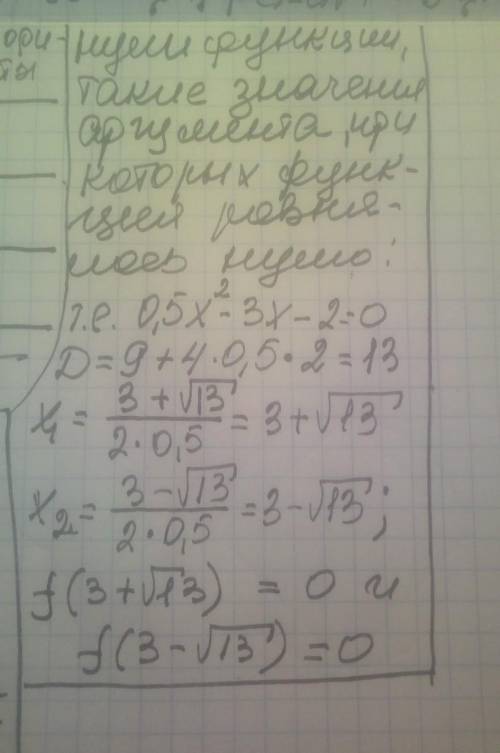 ори-
ты
нули функции,
такие значения
аргумента, при
которых функ-
ция ровня-
лось нулю:
т.е. 0,5x² - 3x - 2 = 0
D = 9 + 4 · 0,5 · 2 = 13
x₁ = (3 + √13)/(2 · 0,5) = 3 + √13
x₂ = (3 - √13)/(2 · 0,5) = 3 - √13;
f(3 + √13) = 0 и
f(3 - √13) = 0